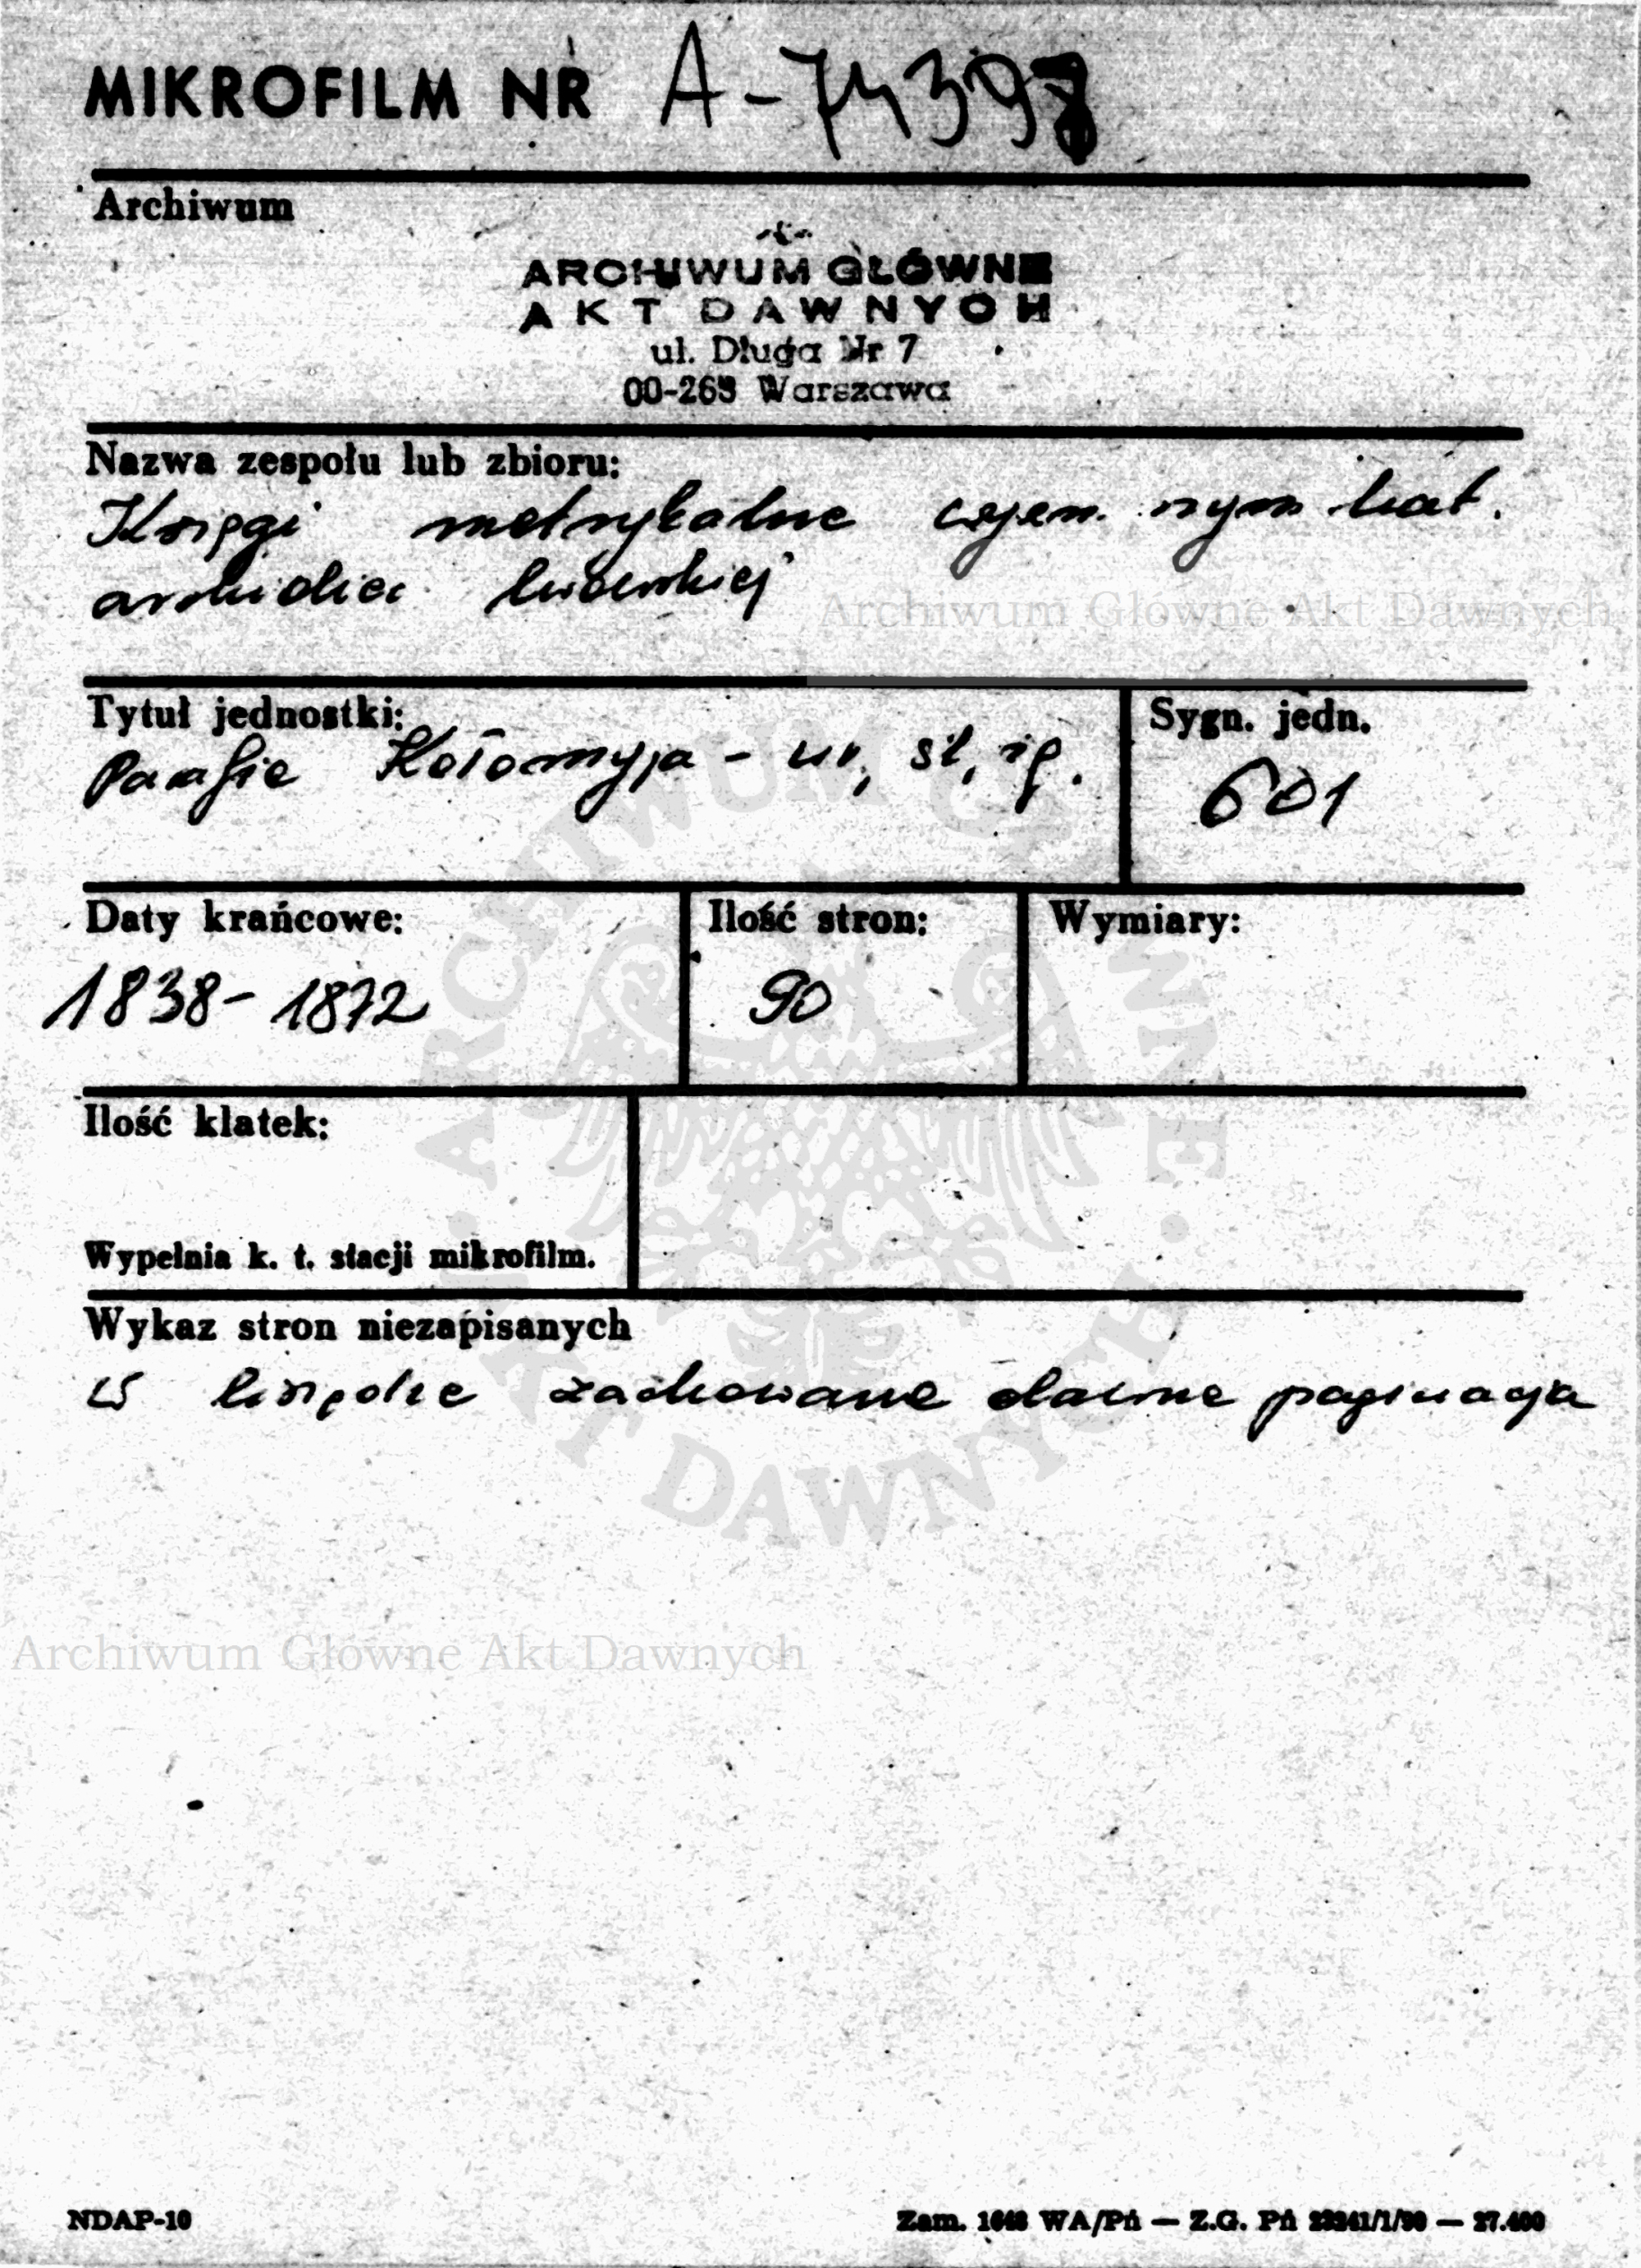 MIKROFILM NR A-7439
Archiwum
ARCHIWUM GŁÓWNE
AKT DAWNYCH
ul. Długa Nr 7
00-263 Warszawa
Nazwa zespołu lub zbioru:
Księgi metrykalne wyzn. rzym. kat.
archidiec lwowskiej
Archiwum Główne Akt Dawnych
Tytuł jednostki:
Parafie Kołomyja - ur, śl, zg.
Sygn. jedn.
601
Daty krańcowe:
1838 - 1872
Ilość stron:
90
Wymiary:
Ilość klatek:
Wypełnia k. t. stacji mikrofilm.
Wykaz stron niezapisanych
W księdze zachowane dawne paginacja
ARCHIWUM GŁÓWNE
AKT DAWNYCH
Archiwum Główne Akt Dawnych
NDAP-10
Zam. WA/Pń — Z.G. Pń — 27.400